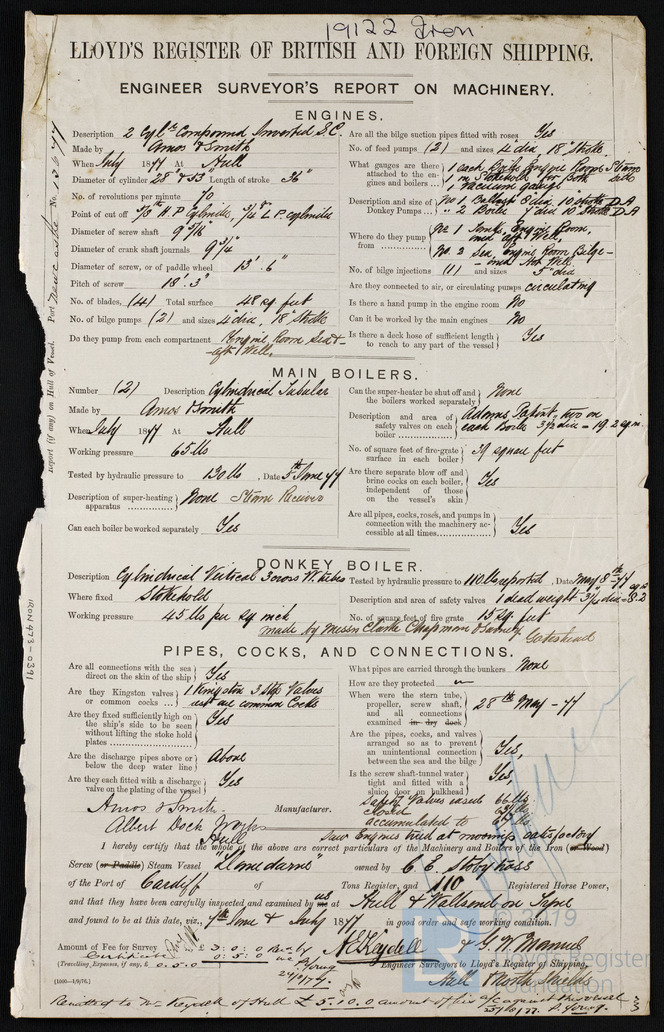 19122 Iron
LLOYD'S REGISTER OF BRITISH AND FOREIGN SHIPPING.
ENGINEER SURVEYOR'S REPORT ON MACHINERY.
ENGINES.
Description 2 Cyl. Compound Inverted S.C.
Made by Amos & Smith
When July 1877 At Hull
Diameter of cylinder 28" & 53" Length of stroke 36"
No. of revolutions per minute 70
Point of cut off H.P Cylinder, L.P. cylinder
Diameter of screw shaft
Diameter of crank shaft journals 9 3/4"
Diameter of screw, or of paddle wheel 13'. 6"
Pitch of screw 18'. 3"
No. of blades, (4) Total surface 48 sq feet
No. of bilge pumps (2) and sizes 4 dia, 18" Stroke
Do they pump from each compartment Engine Room Sea &
aft Well,
Are all the bilge suction pipes fitted with roses Yes
No. of feed pumps (2) and sizes 4 dia 18" Stroke
What gauges are there attached to the engines and boilers 1 each Boiler, Engine Room Steam
in Stokehold for Both
1 Vacuum gauge
Description and size of Donkey Pumps No 1 Ballast 8 dia, 10 stroke D.A
" 2 Boiler dia 10 Stroke D.A
Where do they pump from No. 1 Tanks, Engine Room,
and aft Well,
No. 2 Sea, Engine Room Bilge
and Hot Well
No. of bilge injections (1) and sizes 5" dia
Are they connected to air, or circulating pumps circulating
Is there a hand pump in the engine room No
Can it be worked by the main engines No
Is there a deck hose of sufficient length to reach to any part of the vessel Yes
Port Newcastle No.
Report (if any) on Hull of Vessel.
MAIN BOILERS.
Number (2) Description Cylindrical Tubular
Made by Amos & Smith
When July 1877 At Hull
Working pressure 65 lbs
Tested by hydraulic pressure to 130 lbs, Date 5th June 77
Description of super-heating apparatus None Steam Receiver
Can each boiler be worked separately Yes
Can the super-heater be shut off and the boilers worked separately None
Description and area of safety valves on each boiler Adams Patent, two on
each Boiler 3 1/2 dia = 19.2 sq in
No. of square feet of fire-grate surface in each boiler 39 square feet
Are there separate blow off and brine cocks on each boiler, independent of those on the vessel's skin Yes
Are all pipes, cocks, roses, and pumps in connection with the machinery accessible at all times Yes
DONKEY BOILER.
Description Cylindrical Vertical 3 cross W. tubes
Where fixed Stokehold
Working pressure 45 lbs per sq inch
Tested by hydraulic pressure to 110 lbs reported, Date May 8th 77
Description and area of safety valves 1 dead weight
No. of square feet of fire grate 15 sq. feet
made by Messrs Clarke Chapman & Gurney Gateshead
IRON 473-0391
PIPES, COCKS, AND CONNECTIONS.
Are all connections with the sea direct on the skin of the ship Yes
Are they Kingston valves or common cocks 1 Kingston 3 Stop Valves
rest are common Cocks
Are they fixed sufficiently high on the ship's side to be seen without lifting the stoke hold plates Yes
Are the discharge pipes above or below the deep water line Above
Are they each fitted with a discharge valve on the plating of the vessel Yes
What pipes are carried through the bunkers None
How are they protected
When were the stern tube, propeller, screw shaft, and all connections examined in dry dock 28th May - 77
Are the pipes, cocks, and valves arranged so as to prevent an unintentional connection between the sea and the bilge Yes,
Is the screw shaft-tunnel water tight and fitted with a sluice door on bulkhead Yes,
Safety Valves eased 66 lbs
closed
accumulated to
Amos & Smith Manufacturer.
Albert Dock Works
Hull
Saw Engines tried at moorings satisfactory
I hereby certify that the whole of the above are correct particulars of the Machinery and Boilers of the Iron (or Wood)
Screw (or Paddle) Steam Vessel owned by C. E. Stobyhass
of the Port of Cardiff of Tons Register, and 110 Registered Horse Power,
and that they have been carefully inspected and examined by us me at Hull & Wallsend on Tyne
and found to be at this date, viz., 7th June & Augt 1877 in good order and safe working condition.
Amount of Fee for Survey £ 3 : 0 : 0
Certificate 0 : 5 : 0
(Travelling Expenses, if any, £ 0.5.0
P. Young
24/8/77.
& G W Manuel
Engineer Surveyors to Lloyd's Register of Shipping,
Hull North Shields
[1000—1/9/76.]
Remitted to Mr Keydell of Hull £ 5.10.0 amount of fee a/c against this vessel
25/10/77. P. Young.
© 2019
Lloyd's Register
Foundation